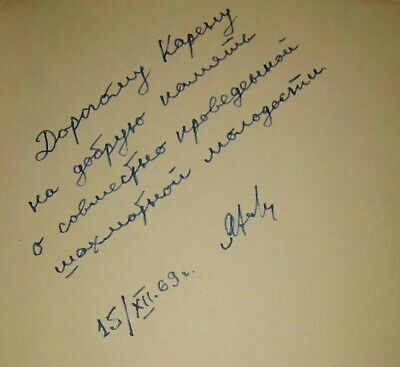 Дорогому Карену
на добрую память
о совместно проведенной
шахматной молодости.
15/XII.69г.